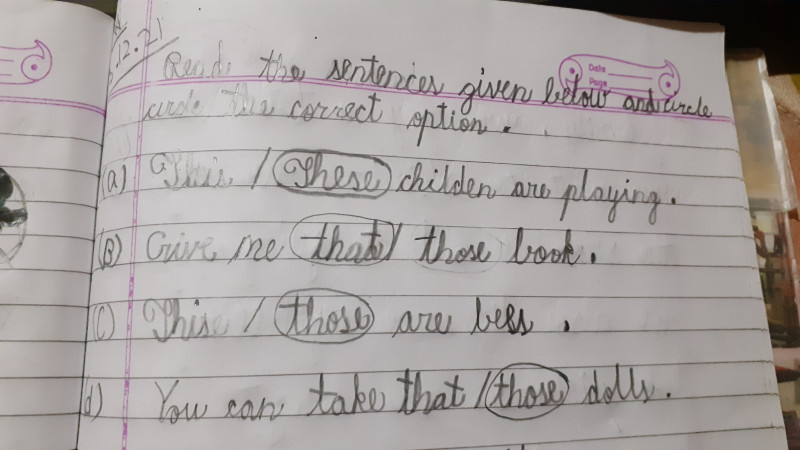 12.21
Date
Page
Read the sentences given below and circle
circle the correct option.
(a) This / These childen are playing.
(B) Give me that / those book.
(C) This / those are bess.
d) You can take that / those dolls.